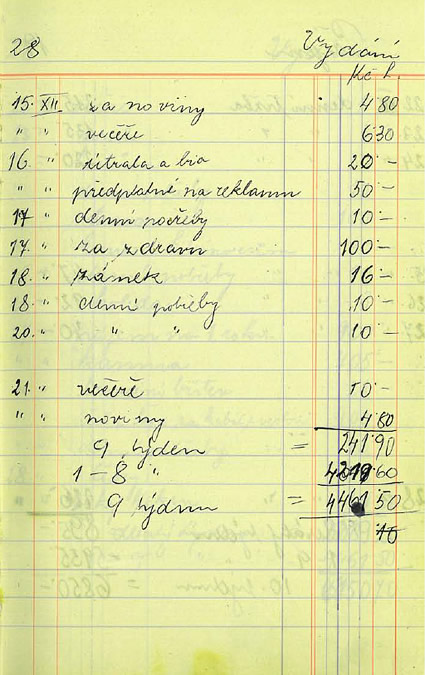 28 Vydání
Kč h.
15. XII za noviny 4·80
" " večeře 6·30
16. " útrata a bio 20·—
" " předplatné na reklamu 50·—
17 " denní potřeby 10·—
17. " za zdravu 100·—
18. " zámek 16·—
18. " denní potřeby 10·—
20. " " " 10·—
21. " večeře 10·—
" " noviny 4·80
9 týden = 241·90
1–8 " 4219·60
9 týdnu = 4461·50